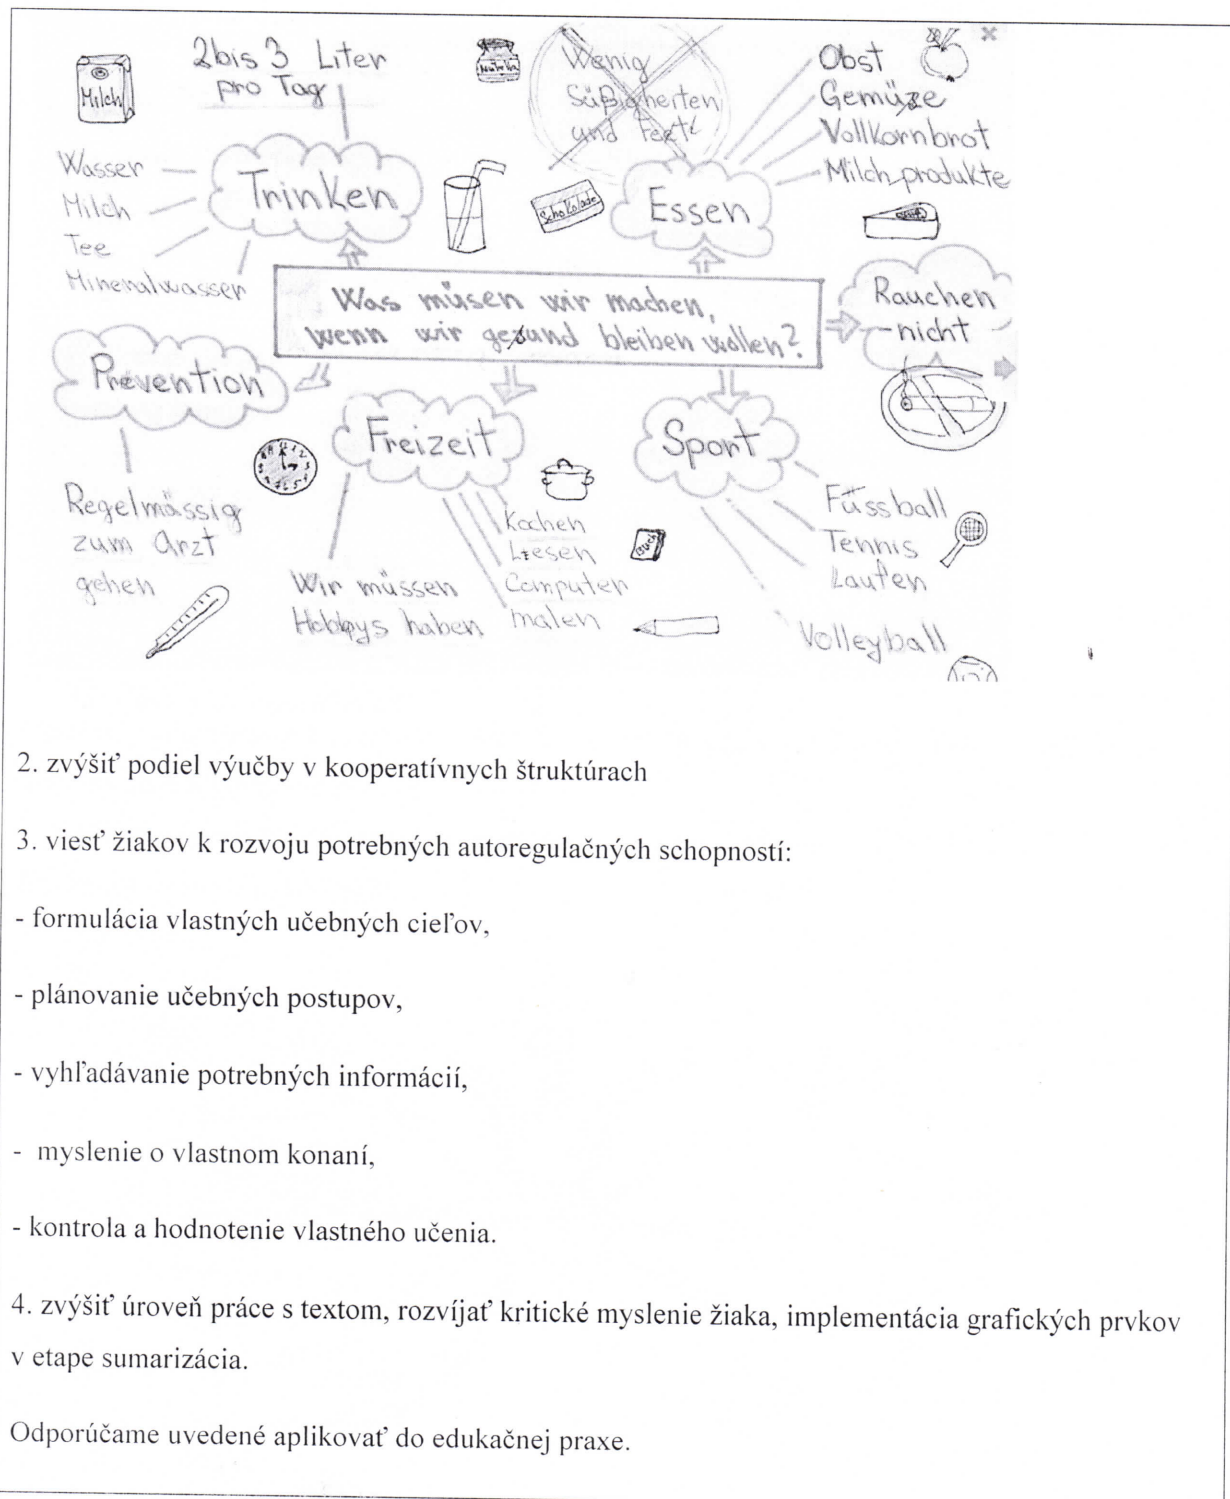 2 bis 3 Liter
pro Tag
Milch
Nutella
Wenig
Süßigkeiten
und Fett
Obst
Gemüze
Vollkornbrot
Milchprodukte
Wasser
Milch
Tee
Mineralwasser
Trinken
Schokolade
Essen
Was müsen wir machen,
wenn wir gesund bleiben wollen?
Rauchen
nicht
Prevention
Freizeit
Sport
Regelmässig
zum Arzt
gehen
Wir müssen
Hobbys haben
Kochen
Liesen
Computer
malen
Buch
Füssball
Tennis
Laufen
Volleyball
2. zvýšiť podiel výučby v kooperatívnych štruktúrach
3. viesť žiakov k rozvoju potrebných autoregulačných schopností:
- formulácia vlastných učebných cieľov,
- plánovanie učebných postupov,
- vyhľadávanie potrebných informácií,
- myslenie o vlastnom konaní,
- kontrola a hodnotenie vlastného učenia.
4. zvýšiť úroveň práce s textom, rozvíjať kritické myslenie žiaka, implementácia grafických prvkov
v etape sumarizácia.
Odporúčame uvedené aplikovať do edukačnej praxe.